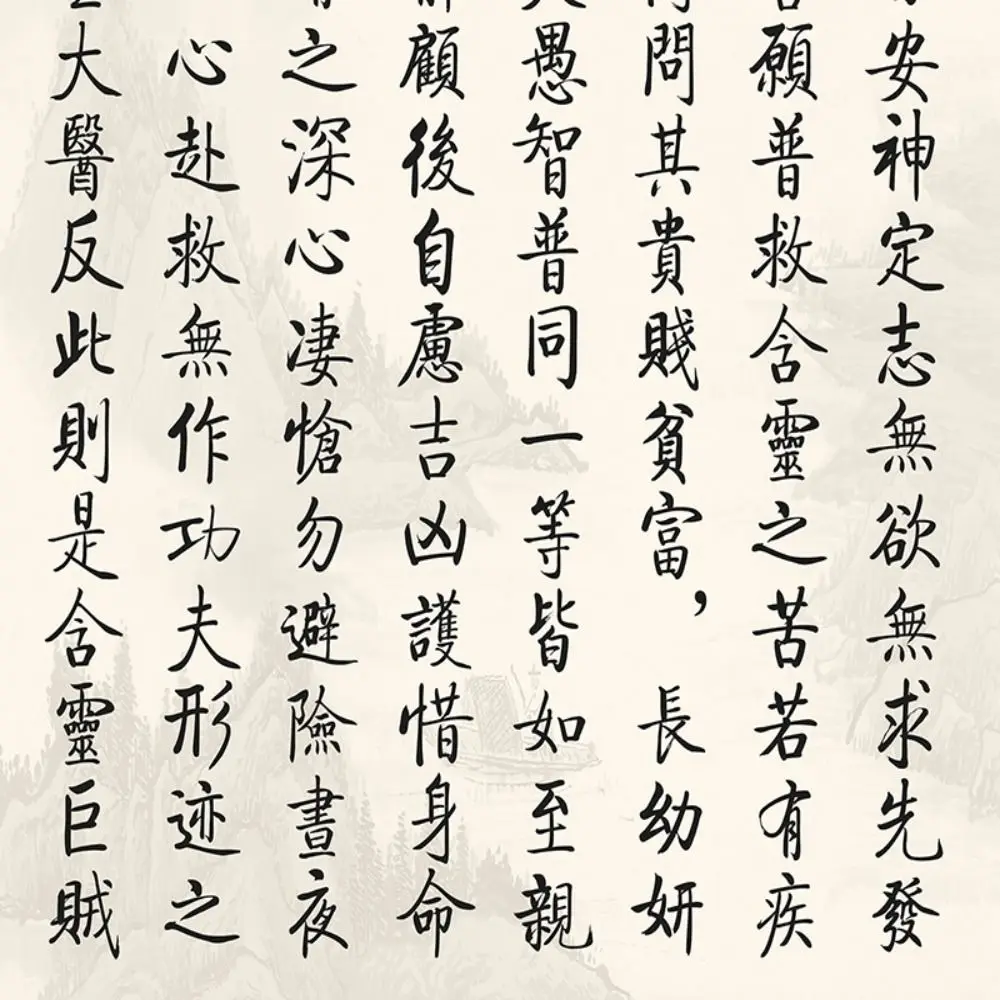 安神定志無欲無求先發
願普救含靈之苦若有疾
問其貴賤貧富，長幼妍
愚智普同一等皆如至親
顧後自慮吉凶護惜身命
之深心凄愴勿避險晝夜
心赴救無作功夫形迹之
大醫反此則是含靈巨賊